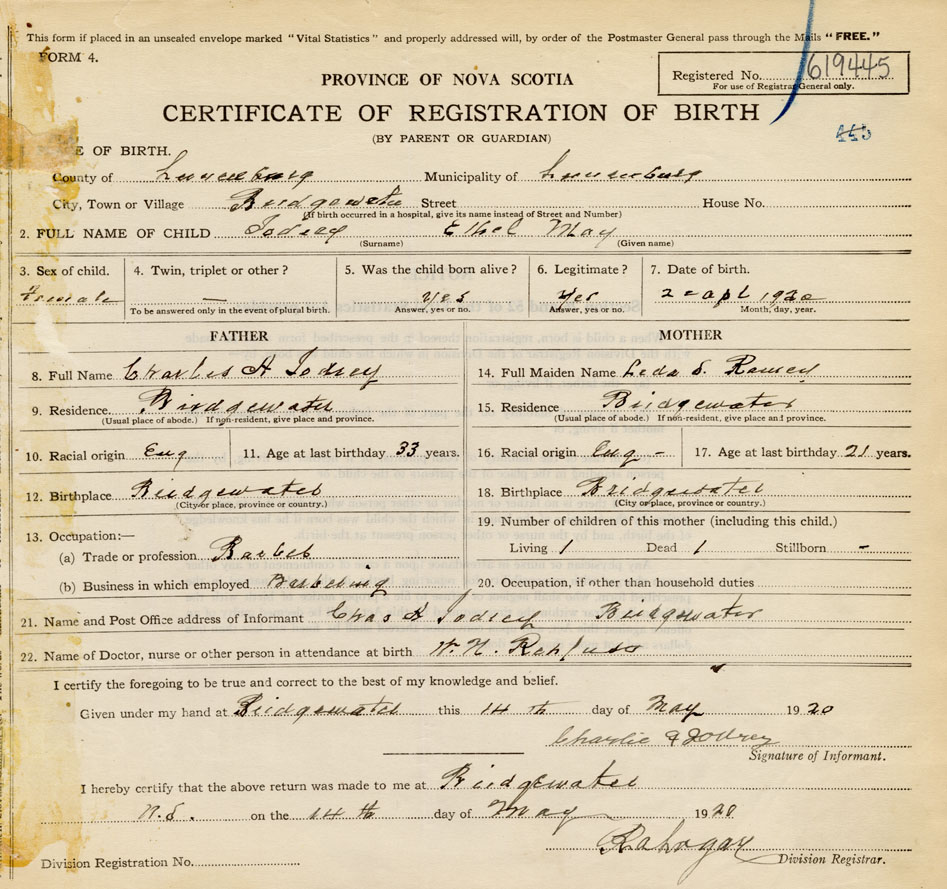 This form if placed in an unsealed envelope marked "Vital Statistics" and properly addressed will, by order of the Postmaster General pass through the Mails "FREE."
FORM 4.
PROVINCE OF NOVA SCOTIA
Registered No. 619445
For use of Registrar General only.
CERTIFICATE OF REGISTRATION OF BIRTH
(BY PARENT OR GUARDIAN)
445
E OF BIRTH.
County of Lunenburg Municipality of Lunenburg
City, Town or Village Bridgewater Street House No.
(If birth occurred in a hospital, give its name instead of Street and Number)
2. FULL NAME OF CHILD Jodrey Ethel May
(Surname) (Given name)
3. Sex of child. 4. Twin, triplet or other? 5. Was the child born alive? 6. Legitimate? 7. Date of birth.
female — Yes Yes 2 = apl 1920
To be answered only in the event of plural birth. Answer, yes or no. Answer, yes or no. Month, day, year.
FATHER MOTHER
8. Full Name Charles H Jodrey 14. Full Maiden Name Leda S. Ramey
9. Residence Bridgewater 15. Residence Bridgewater
(Usual place of abode.) If non-resident, give place and province. (Usual place of abode.) If non-resident, give place and province.
10. Racial origin Eng 11. Age at last birthday 33 years. 16. Racial origin Eng - 17. Age at last birthday 21 years.
12. Birthplace Bridgewater 18. Birthplace Bridgewater
(City or place, province or country.) (City or place, province or country.)
19. Number of children of this mother (including this child.)
13. Occupation:—
(a) Trade or profession Barber Living 1 Dead 1 Stillborn -
(b) Business in which employed Barbering 20. Occupation, if other than household duties
21. Name and Post Office address of Informant Chas H Jodrey Bridgewater
22. Name of Doctor, nurse or other person in attendance at birth W. N. Rehfuss
I certify the foregoing to be true and correct to the best of my knowledge and belief.
Given under my hand at Bridgewater this 14 th day of May 1920
Charlie Jodrey
Signature of Informant.
I hereby certify that the above return was made to me at Bridgewater
N.S. on the 14 th day of May 1920
Division Registration No. Division Registrar.